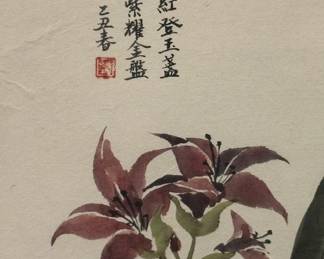 紅登玉盞
紫耀金盤
乙丑春